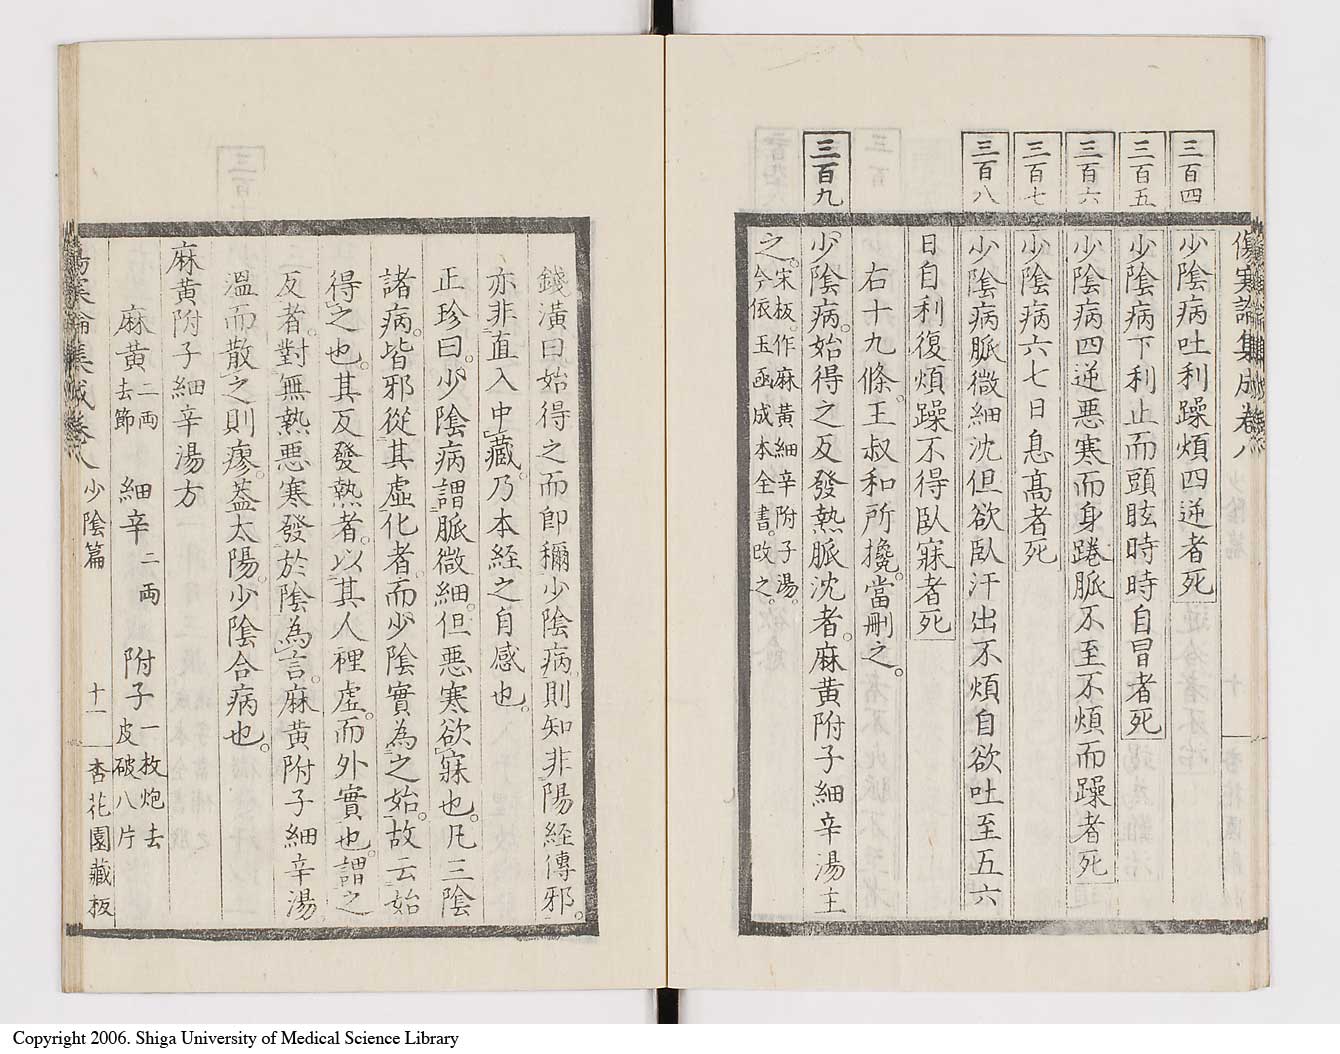 傷寒論集成卷八
三百四
少陰病吐利躁煩四逆者死
三百五
少陰病下利止而頭眩時時自冒者死
三百六
少陰病四逆惡寒而身踡脈不至不煩而躁者死
三百七
少陰病六七日息高者死
三百八
少陰病脈微細沈但欲臥汗出不煩自欲吐至五六
日自利復煩躁不得臥寐者死
右十九條。王叔和所攙。當刪之。
三百九
少陰病。始得之反發熱脈沈者。麻黃附子細辛湯主
之。宋板。作麻黃細辛附子湯。
今依玉函成本全書。改之。
錢潢曰始得之而卽稱少陰病。則知非陽經傳邪。
亦非直入中藏。乃本經之自感也。
正珍曰。少陰病謂脈微細。但惡寒欲寐也。凡三陰
諸病。皆邪從其虛化者。而少陰實為之始。故云始
得之也。其反發熱者。以其人裡虛。而外實也。謂之
反者。對無熱惡寒發於陰為言。麻黃附子細辛湯。
溫而散之則瘳。蓋太陽。少陰合病也。
麻黃附子細辛湯方
麻黃二両去節 細辛二両 附子一枚炮去皮破八片
傷寒論集成卷八 少陰篇 十一 杏花園藏板
Copyright 2006. Shiga University of Medical Science Library